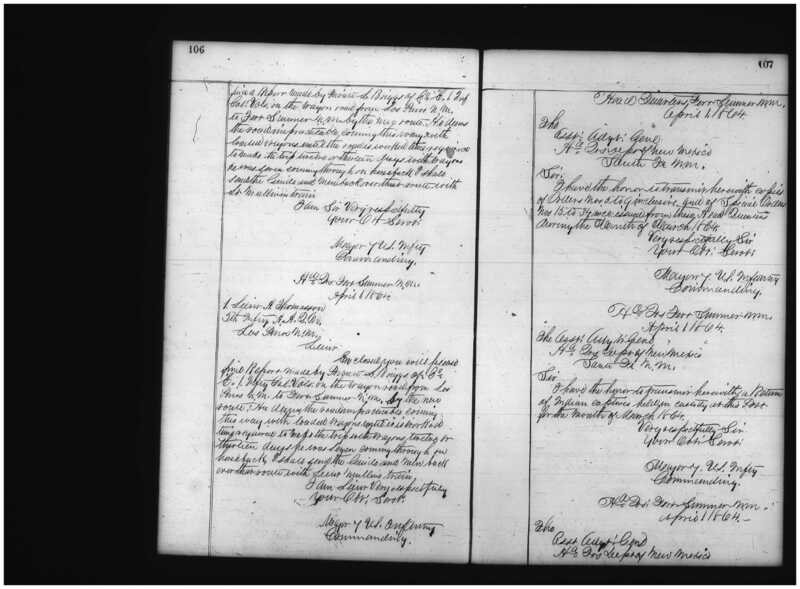 106
find a Report made by Private S. Briggs of Co. E. 1 Inf
Cal. Vols. on the wagon road from Los Pinos N.M.
to Fort Sumner N.M. by the new route. He deems
the road impracticable, coming this way with
loaded wagons until the road is worked
to make the trip twelve or thirteen days with wagons
he was seven coming through on horseback I shall
send the Guide and Men back over that route with
Lt. Mullins train
I am Sir Very respectfully
Your Obt Servt.
Major 7 U.S. Infty
Commanding.
Hd Qrs Fort Sumner N.M.
April 1 1864
1. Lieut A. Thompson
7th Infty A.A.Q.M.
Los Pinos N.M.
Lieut
Enclosed you will please
find Report made by Private S. Briggs of Co.
E. 1 Infty Cal. Vols. on the wagon road from Los
Pinos N.M. to Fort Sumner N.M. by the new
route. He deems the road impracticable coming
this way with loaded wagons until it is worked
time required to make the trip with wagons, twelve or
thirteen days he was seven coming through on
horseback, I shall send the Guide and Men back
over that route with Lieut Mullins train,
I am Lieut Very respectfully
Your Obt. Servt.
Major 7 U.S. Infantry
Commanding.
107
Head Quarters, Fort Sumner N.M.
April 1, 1864.
The
Asst. Adjt. Genl.
Hd Qrs Dept of New Mexico
Santa Fe N.M.
Sir:
I have the honor to transmit herewith copies
of Orders Nos 2 to 9 inclusive, and of Special Orders
Nos 15 to issued from these Head Quarters
during the Month of March 1864.
Very respectfully Sir
Your Obt. Servt.
Major 7 U.S. Infantry
Commanding.
Hd Qrs Fort Sumner N.M.
April 1 1864.
The Asst. Adjt. Genl
Hd Qrs Dept of New Mexico
Santa Fe N.M.
Sir
I have the honor to transmit herewith, a Return
of Indian captives held in custody at this Post
for the Month of March 1864.
Very respectfully Sir
Your Obt Servt
Major 7 U.S. Infty
Commanding.
Hd Qrs Fort Sumner N.M.
April 1 1864.
The
Asst. Adjt. Genl
Hd Qrs Dept of New Mexico